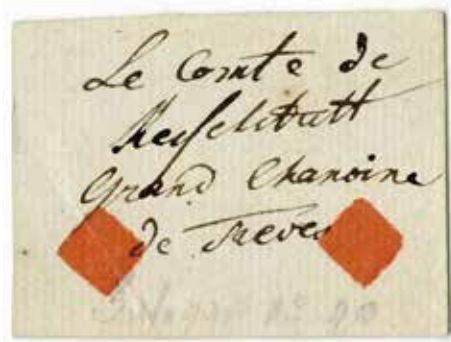 Le Comte de
Kesselstatt
Grand Chanoine
de Treves